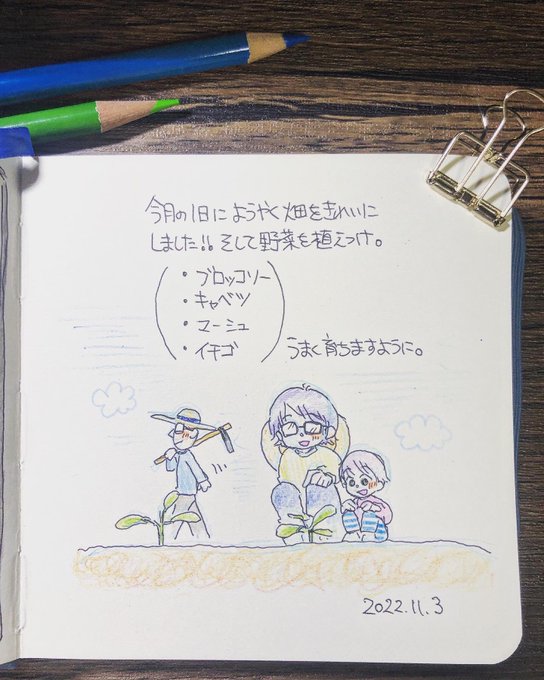 今月の1日にようやく畑をきれいに
しました!! そして野菜を植えつけ。
・ブロッコリー
・キャベツ
・マーシュ
・イチゴ
うまく育ちますように。
2022.11.3